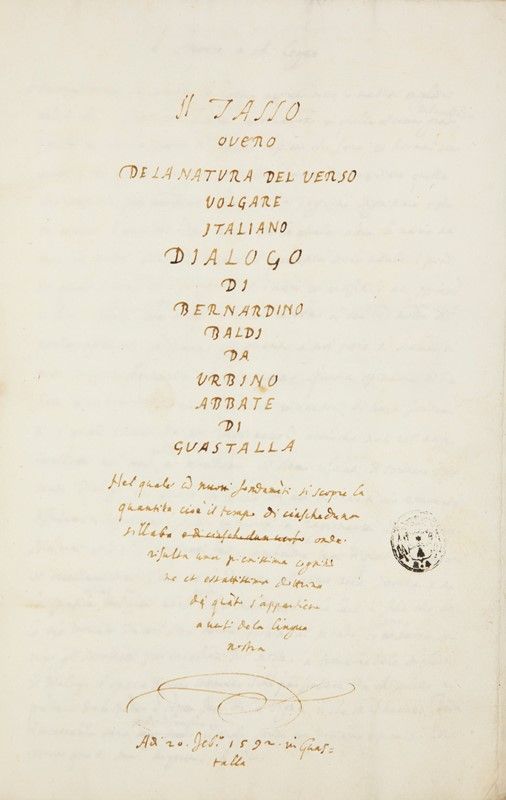 Il TASSO
OVERO
DE LA NATURA DEL VERSO
VOLGARE
ITALIANO
DIALOGO
DI
BERNARDINO
BALDI
DA
URBINO
ABBATE
DI
GUASTALLA
Nel quale cō nuovi fondamēti si scopre la
quantita cioè il tempo di ciascheduna
sillaba e di ciaschedun verso onde
risulta una pienissima cogniti
ne et esattissima dottrina
di quāto s'appartiene
a versi de la lingua
nostra
Adi 20. Feb.º 1592. in Guas=
talla